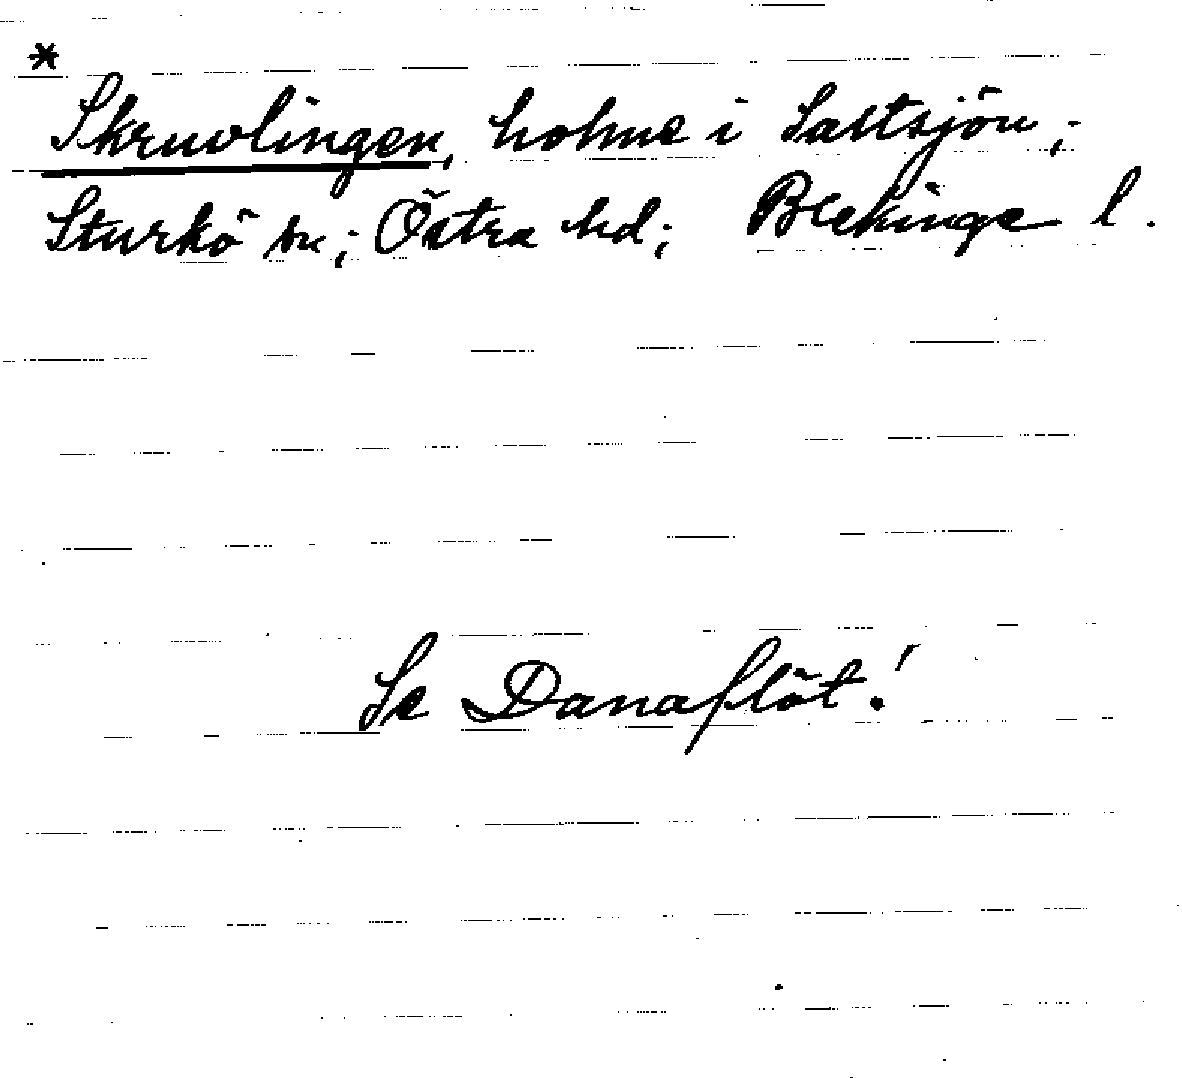 *
Skruvlingen, holme i Saltsjön;
Sturkö sn; Östra hd; Blekinge l.
Se Danaflöt!